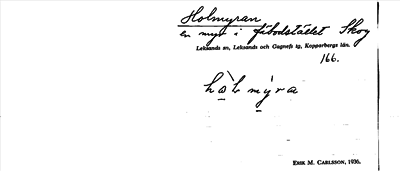 Holmyran
en myr i fäbodstället Skog
Leksands sn, Leksands och Gagnefs tg, Kopparbergs län.
166.
hòl mýra
ERIK M. CARLSSON, 1936.